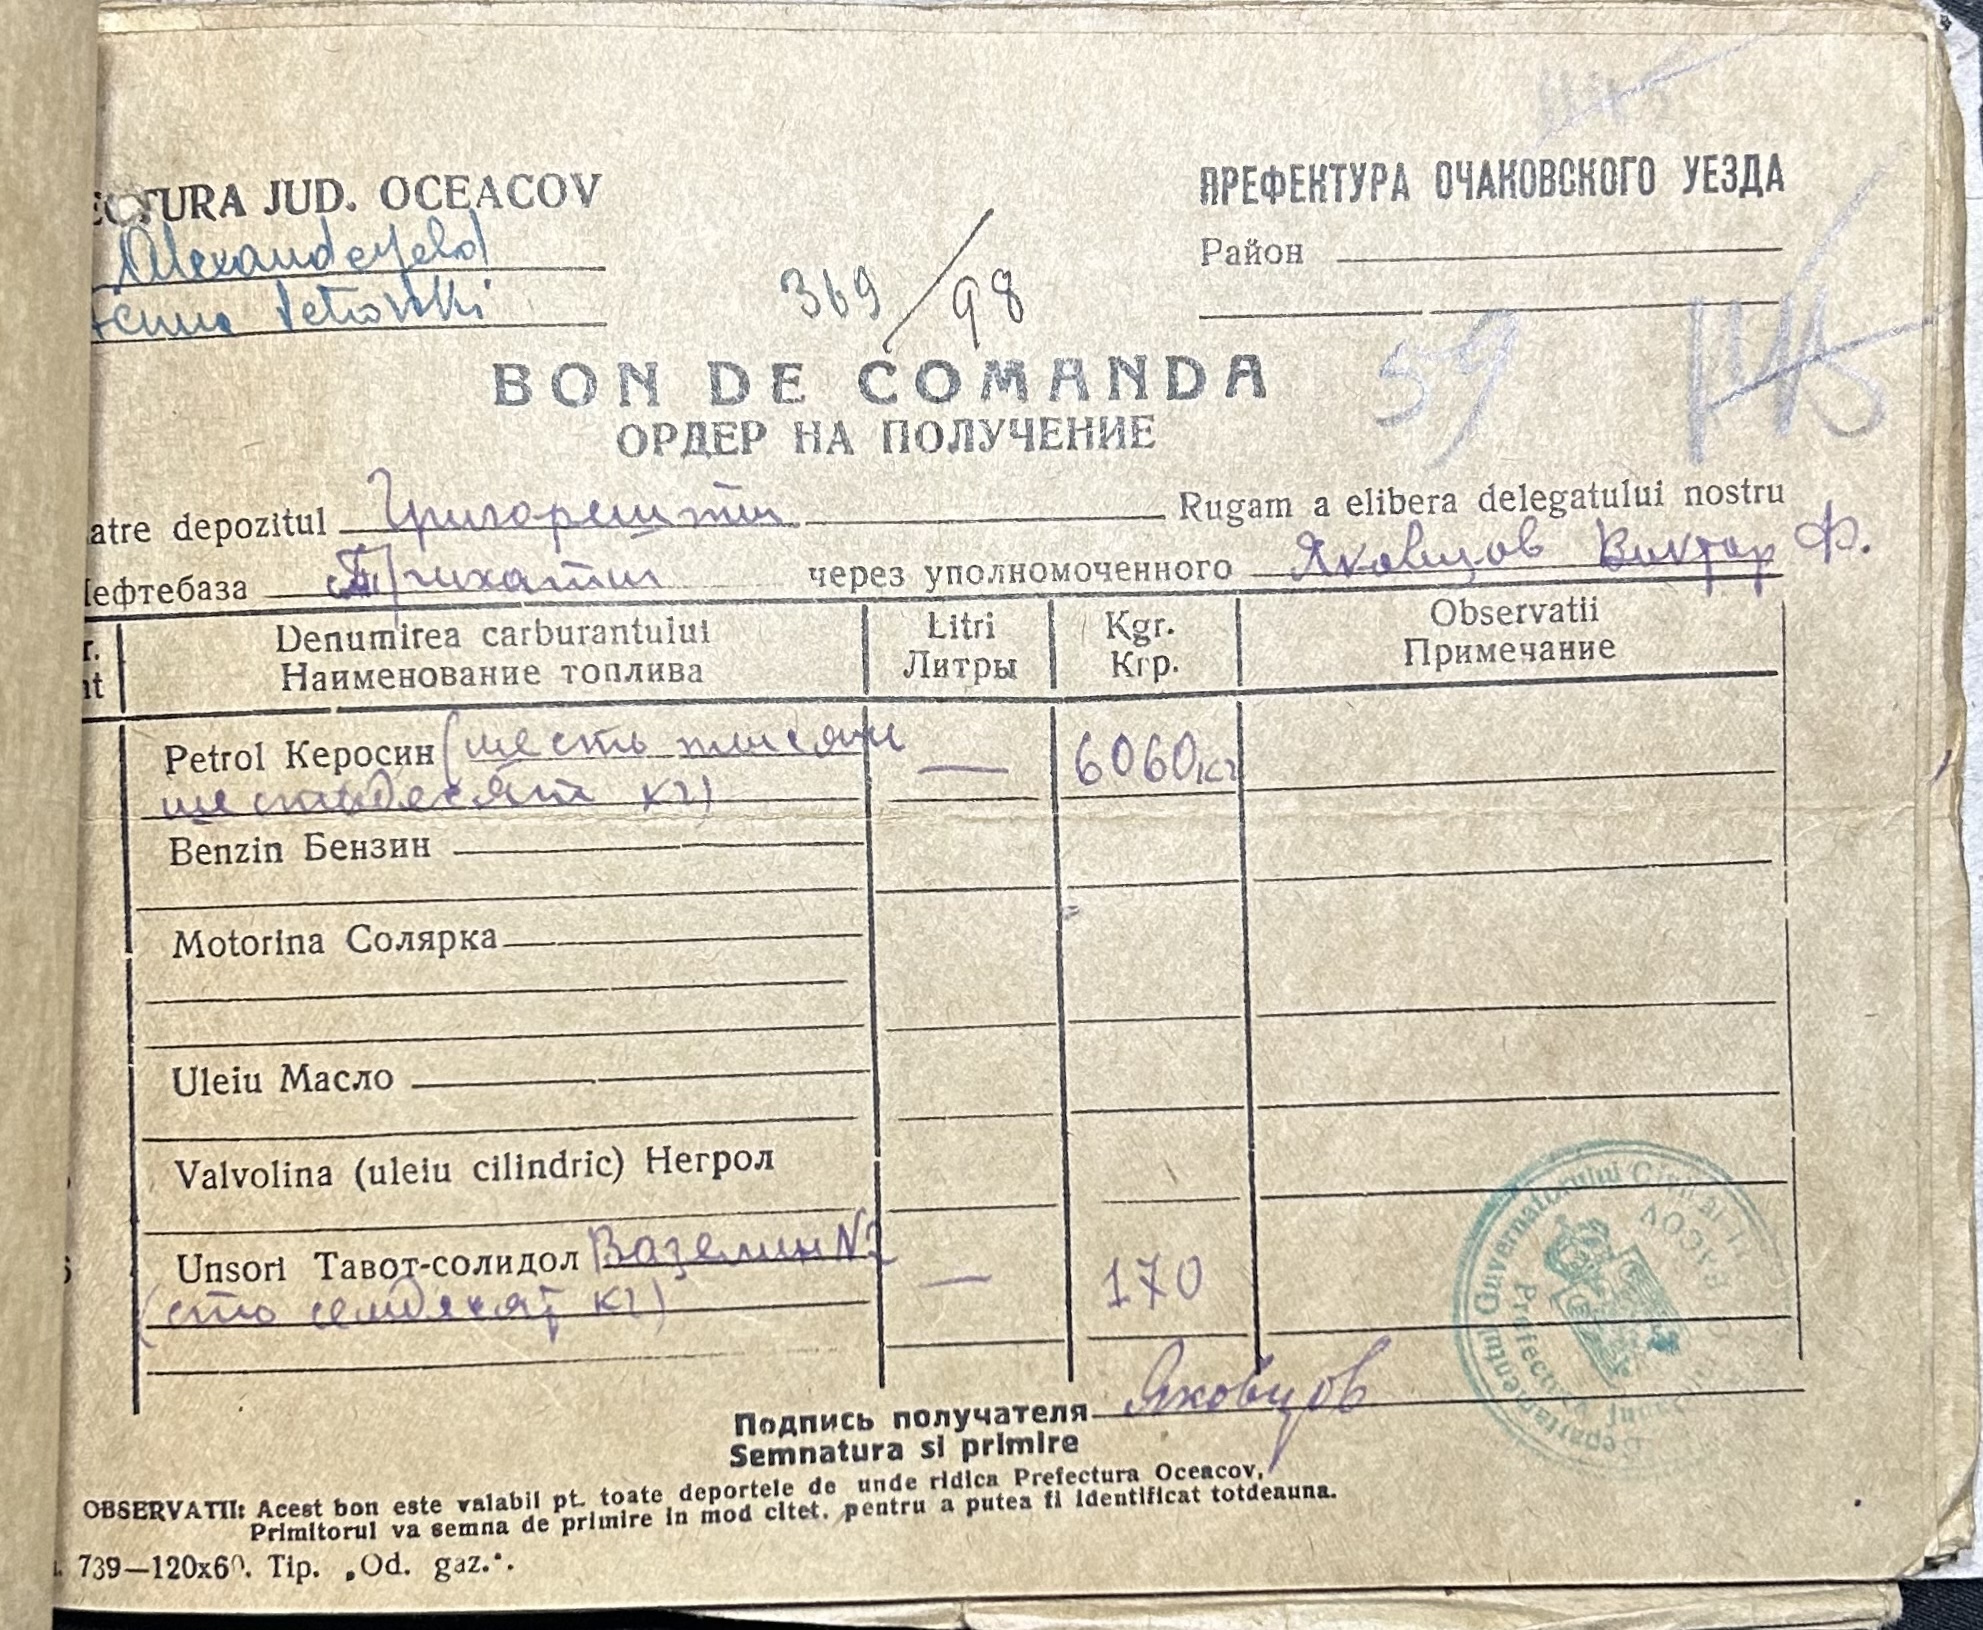 ECTURA JUD. OCEACOV
Alexanderfeld
Petrovski
369/98
ПРЕФЕКТУРА ОЧАКОВСКОГО УЕЗДА
Район
59
BON DE COMANDA
ОРДЕР НА ПОЛУЧЕНИЕ
atre depozitul Григорешти Rugam a elibera delegatului nostru
Нефтебаза Трихати через уполномоченного Яковцов Виктор Ф.
r. Denumirea carburantului Litri Kgr. Observatii
nt Наименование топлива Литры Кгр. Примечание
Petrol Керосин (шесть тысячи — 6060 кг
шестьдесят кг)
Benzin Бензин
Motorina Солярка
Uleiu Масло
Valvolina (uleiu cilindric) Негрол
Unsori Тавот-солидол Вазелин №2 — 170
(сто семдесят кг)
Подпись получателя Яковцов
Semnatura si primire
OBSERVATII: Acest bon este valabil pt. toate deportele de unde ridica Prefectura Oceacov,
Primitorul va semna de primire in mod citet, pentru a putea fi identificat totdeauna.
739—120x60. Tip. „Od. gaz.".
Guvernamantului Civil al
Prefectura Judet